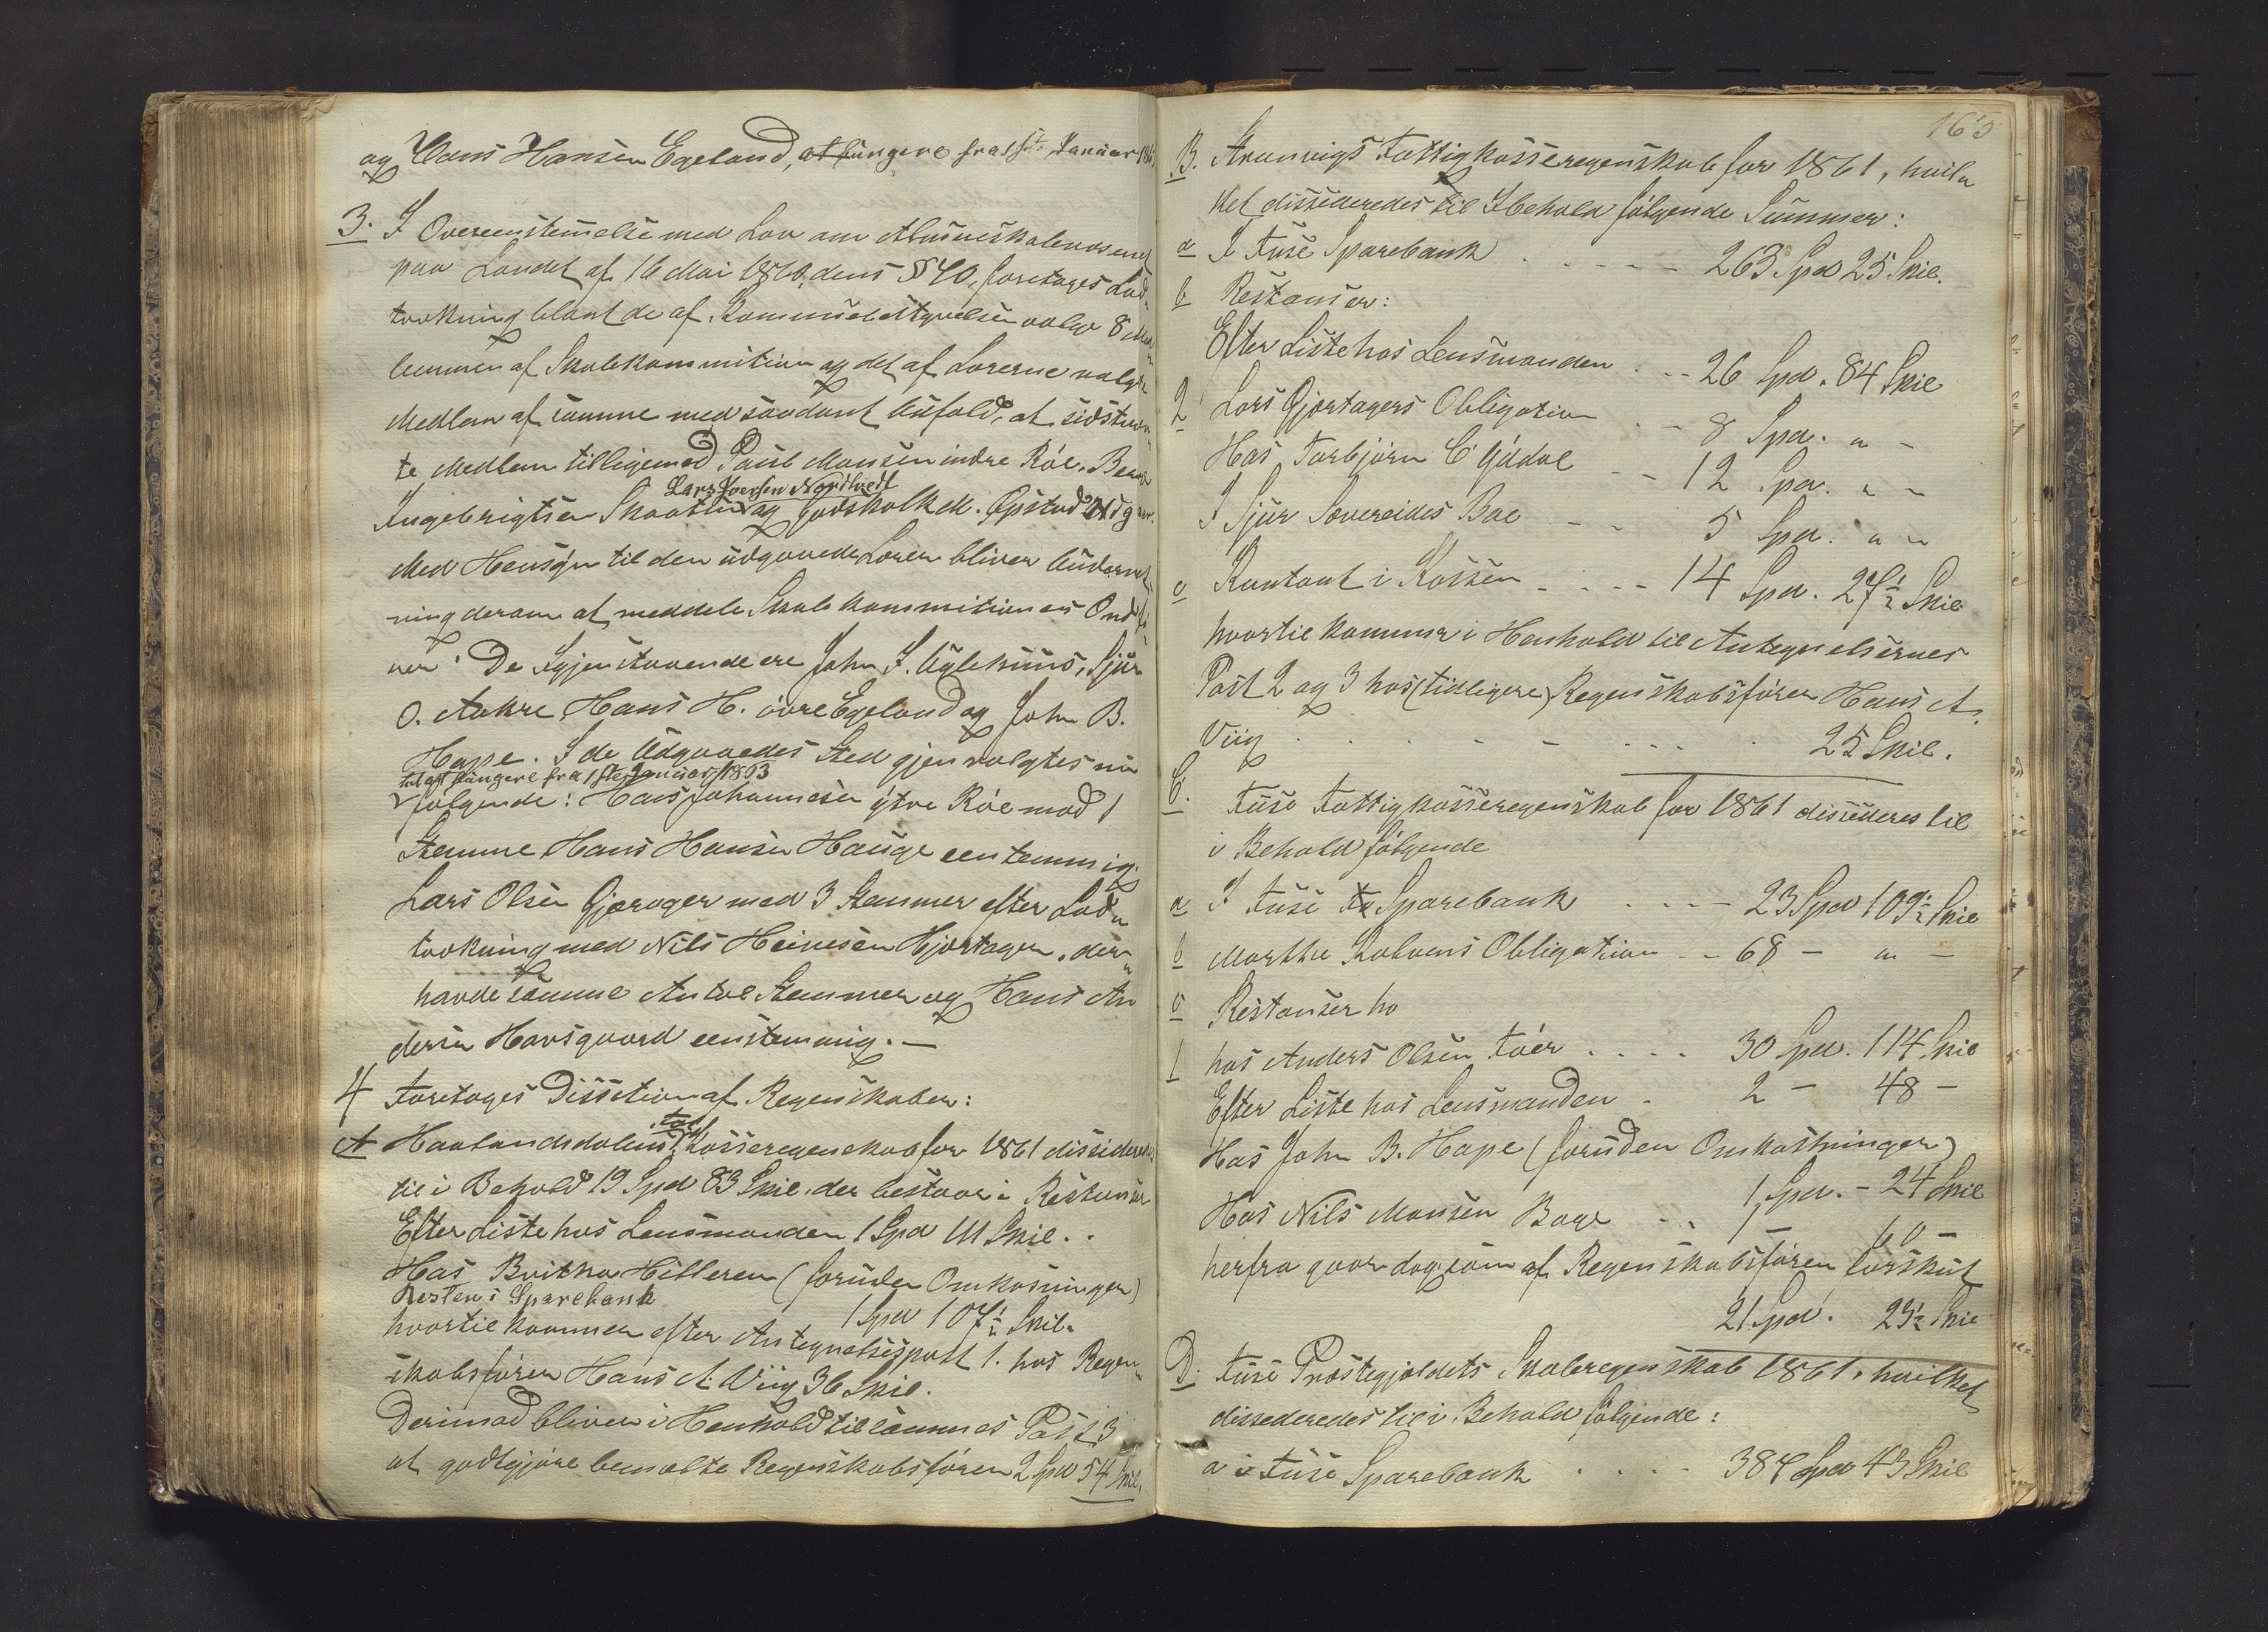 og Hans Hansen Egeland, at fungere fra 1ste Januar 186
3. I Overeenstemmelse med Lov om Almueskolevæsenet
paa Landet af 16 Mai 1860, dens § 40, foretages Lod-
trækning blant de af Kommunebestyrelsen valgte 8 Med-
lemmer af Skolekommitionen og det af Lærerne valgte
Medlem af samme med saadant Udfald, at sidstnævn-
te Medlem tilligemed Poul Monsen indre Røe, Berve
Lars Iversen Nordtvedt
Ingebrigtsen Skaatun og Godskalk M. Opstad Udgaar.
Med Hensyn til den udgaaede Lærer bliver Underret-
ning derom at meddele Skolekommitionens Ordfø-
rer. De Igjenstaaende ere John J. Uglehuus, Sjur
O. Aakre Hans H. øvre Egeland og John B.
Hope. I de Udgaaedes Sted gjenvalgtes nu
til at fungere fra 1ste Januar 1863
følgende: Hans Johannesen ytre Røe mod 1
Stemme Hans Hansen Hauge eenstemmig.
Lars Olsen Gjerager med 3 Stemmer efter Lod-
trækning med Nils Heinesen Hjortager, der
havde samme Antal Stemmer og Hans An
dersen Havsgaard eenstemmig. —
4 Foretoges Dissetion af Regenskaber:
A Haalandsdalens Kasseregenskab for 1861 dissideredes
til i Behold 19 Spd 83 Skil. der bestaar i Restanser
Efter Liste hos Lensmanden 1 Spd 111 Skil. .
Hos Britha Hilleren (foruden Omkosninger)
Resten i Sparebank
1 Spd 107½ Skil.
hvortil kommer efter Antegnelsespost 1. hos Regen-
skabsfører Hans A. Viig 36 Skil.
Derimod bliver i Henhold til sammes Post 3
at godtgjøre bemælte Regenskabsfører 2 Spd 54 Skil.
165
B. Strandvigs Fattigkasseregenskab for 1861, hvil-
ket dissideredes til I behold følgende Summer:
a I Fuse Sparebank . . - - - - 263 Spd 25 Skil.
b Restanser:
Efter Liste hos Lensmanden . - - 26 Spd. 84 Skil
2 Lars Gjertagers Obligation . - 8 Spd. „ -
Hos Torbjørn E Yddal - - 12 Spd. „ -
I Sjur Sævereides Boe - - 5 Spd. „ -
c Kontant i Kassen - - - - 14 Spd. 27½ Skil
hvortil kommer i Henhold til Antegnelsernes
Post 2 og 3 hos (tidligere) Regenskabsfører Hans A.
Viig . . . . . . . 25 Skil.
C. Fuse Fattigkasseregenskab for 1861 dissideres til
i Behold følgende
a I Fuse Sparebank . . - - 23 Spd 109½ Skil
b Marthe Kolvens Obligation - - 68 - „ -
c Restanser ho
1 hos Anders Olsen Tøer . . . . 30 Spd. 114 Skil
Efter Liste hos Lensmanden . 2 - 48 -
Hos John B. Hope (foruden Omkostninger)
1 Spd. - 24 Skil
Hos Nils Monsen Boge . . 1 - 60 -
herfra gaar dog som af Regenskabsføren forskut
21 Spd. 23½ Skil
D. Fuse Præstegjeldets Skoleregenskab 1861, hvilket
dissederedes til i Behold følgende:
a i Fuse Sparebank . . . . 384 Spd 43 Skil